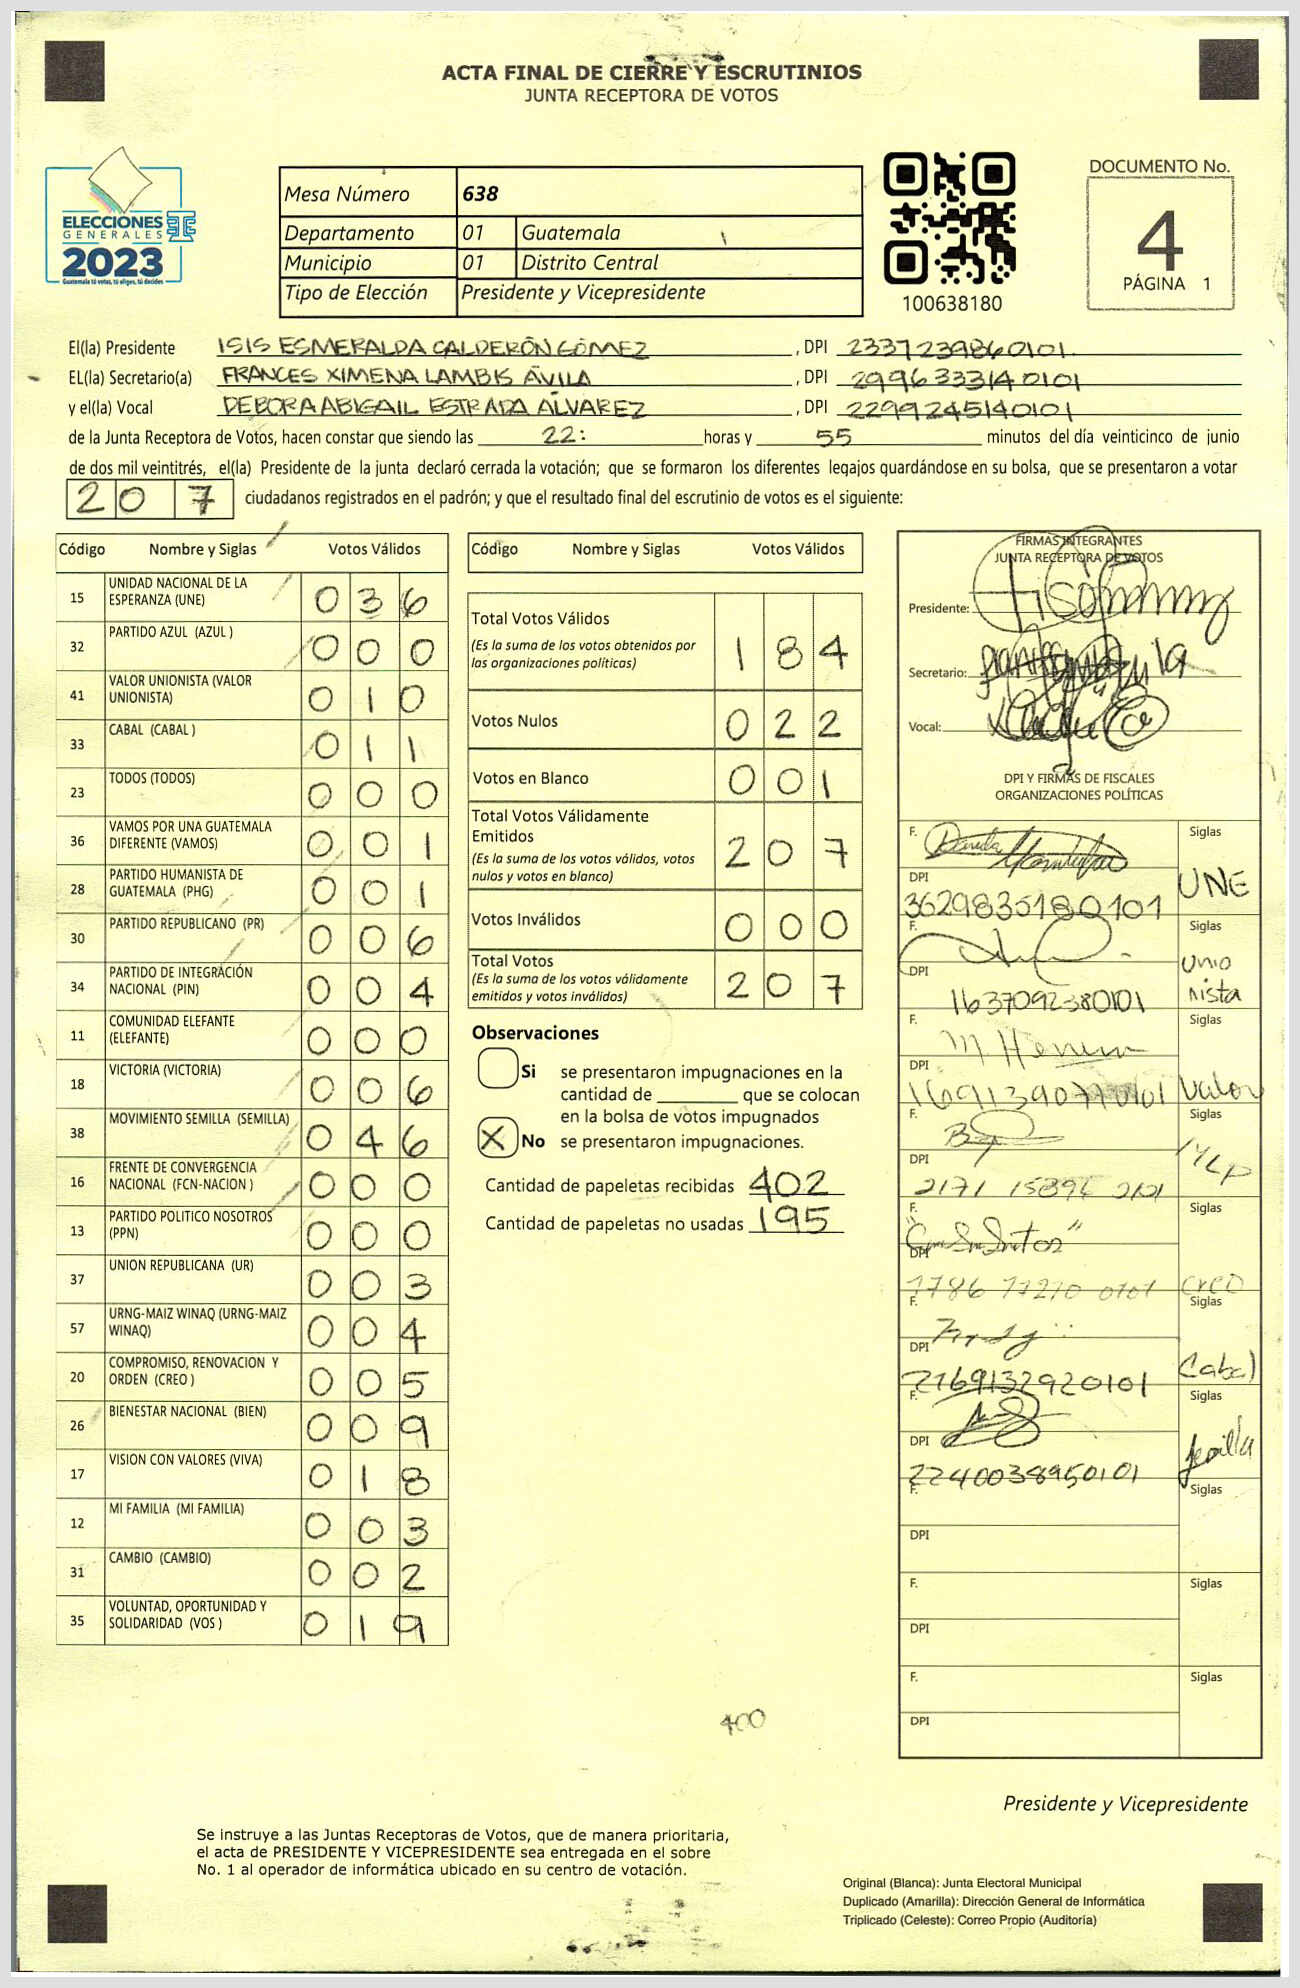 ACTA FINAL DE CIERRE Y ESCRUTINIOS
JUNTA RECEPTORA DE VOTOS
ELECCIONES
GENERALES
2023
Guatemala tú votas, tú eliges, tú decides
Mesa Número 638
Departamento 01 Guatemala
Municipio 01 Distrito Central
Tipo de Elección Presidente y Vicepresidente
100638180
DOCUMENTO No.
4
PÁGINA 1
El(la) Presidente ISIS ESMERALDA CALDERÓN GÓMEZ, DPI 2337239860101
EL(la) Secretario(a) FRANCES XIMENA LAMBIS ÁVILA, DPI 2996333140101
y el(la) Vocal DEBORA ABIGAIL ESTRADA ALVAREZ, DPI 2299245140101
de la Junta Receptora de Votos, hacen constar que siendo las 22: horas y 55 minutos del día veinticinco de junio
de dos mil veintitrés, el(la) Presidente de la junta declaró cerrada la votación; que se formaron los diferentes legajos quardándose en su bolsa, que se presentaron a votar
207 ciudadanos registrados en el padrón; y que el resultado final del escrutinio de votos es el siguiente:
Código Nombre y Siglas Votos Válidos
15 UNIDAD NACIONAL DE LA ESPERANZA (UNE) 036
32 PARTIDO AZUL (AZUL ) 000
41 VALOR UNIONISTA (VALOR UNIONISTA) 010
33 CABAL (CABAL ) 011
23 TODOS (TODOS) 000
36 VAMOS POR UNA GUATEMALA DIFERENTE (VAMOS) 001
28 PARTIDO HUMANISTA DE GUATEMALA (PHG) 001
30 PARTIDO REPUBLICANO (PR) 006
34 PARTIDO DE INTEGRACIÓN NACIONAL (PIN) 004
11 COMUNIDAD ELEFANTE (ELEFANTE) 000
18 VICTORIA (VICTORIA) 006
38 MOVIMIENTO SEMILLA (SEMILLA) 046
16 FRENTE DE CONVERGENCIA NACIONAL (FCN-NACION ) 000
13 PARTIDO POLITICO NOSOTROS (PPN) 000
37 UNION REPUBLICANA (UR) 003
57 URNG-MAIZ WINAQ (URNG-MAIZ WINAQ) 004
20 COMPROMISO, RENOVACION Y ORDEN (CREO ) 005
26 BIENESTAR NACIONAL (BIEN) 009
17 VISION CON VALORES (VIVA) 018
12 MI FAMILIA (MI FAMILIA) 003
31 CAMBIO (CAMBIO) 002
35 VOLUNTAD, OPORTUNIDAD Y SOLIDARIDAD (VOS ) 019
Código Nombre y Siglas Votos Válidos
Total Votos Válidos 184
(Es la suma de los votos obtenidos por
las organizaciones políticas)
Votos Nulos 022
Votos en Blanco 001
Total Votos Válidamente
Emitidos 207
(Es la suma de los votos válidos, votos
nulos y votos en blanco)
Votos Inválidos 000
Total Votos 207
(Es la suma de los votos válidamente
emitidos y votos inválidos)
Observaciones
Si se presentaron impugnaciones en la
cantidad de ________ que se colocan
en la bolsa de votos impugnados
X No se presentaron impugnaciones.
Cantidad de papeletas recibidas 402
Cantidad de papeletas no usadas 195
400
FIRMAS INTEGRANTES
JUNTA RECEPTORA DE VOTOS
Presidente:
Secretario:
Vocal:
DPI Y FIRMAS DE FISCALES
ORGANIZACIONES POLÍTICAS
F. Siglas
DPI 3629835180101 UNE
F. Siglas
DPI 1637092380101 Unionista
F. Siglas
DPI Valor
F. Siglas
DPI MLP
F. Siglas
DPI Creo
F. Siglas
DPI 2769132920101 Cabal
F. Siglas
DPI 2240038950101 Semilla
F. Siglas
DPI
F. Siglas
DPI
F. Siglas
DPI
Presidente y Vicepresidente
Se instruye a las Juntas Receptoras de Votos, que de manera prioritaria,
el acta de PRESIDENTE Y VICEPRESIDENTE sea entregada en el sobre
No. 1 al operador de informática ubicado en su centro de votación.
Original (Blanca): Junta Electoral Municipal
Duplicado (Amarilla): Dirección General de Informática
Triplicado (Celeste): Correo Propio (Auditoría)